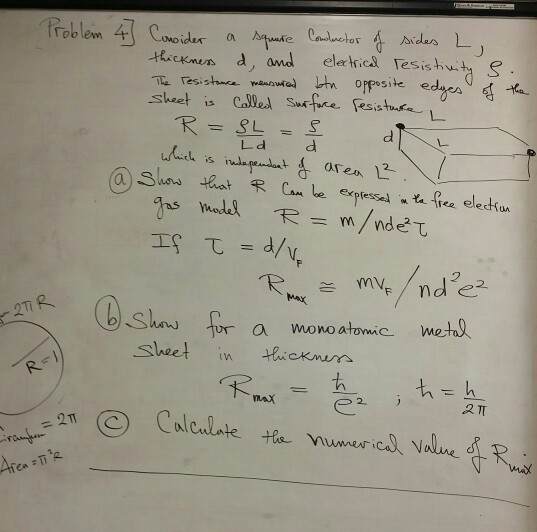 Problem 4] Consider a square Conductor of sides L,
thickness d, and electrical resistivity ρ.
The resistance measured btn opposite edges of the
sheet is called surface resistance
R = ρL/Ld = ρ/d
L
d
L
which is independent of area L².
(a) Show that R can be expressed in the free electron
gas model R = m/nde²τ
If τ = d/V_F
R_max ≅ mV_F/nd²e²
(b) Show for a monoatomic metal
sheet in thickness
R_max = ħ/e² ; ħ = h/2π
(c) Calculate the numerical value of R_max
2πR
R=1
= 2π
Area = π²R